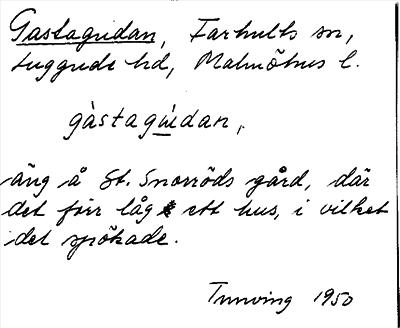 Gastagudan, Farhults sn,
Luggude hd, Malmöhus l.
gàstagu̱dan,
äng å St. Snorröds gård, där
det förr låg ett hus, i vilket
det spökade.
1950